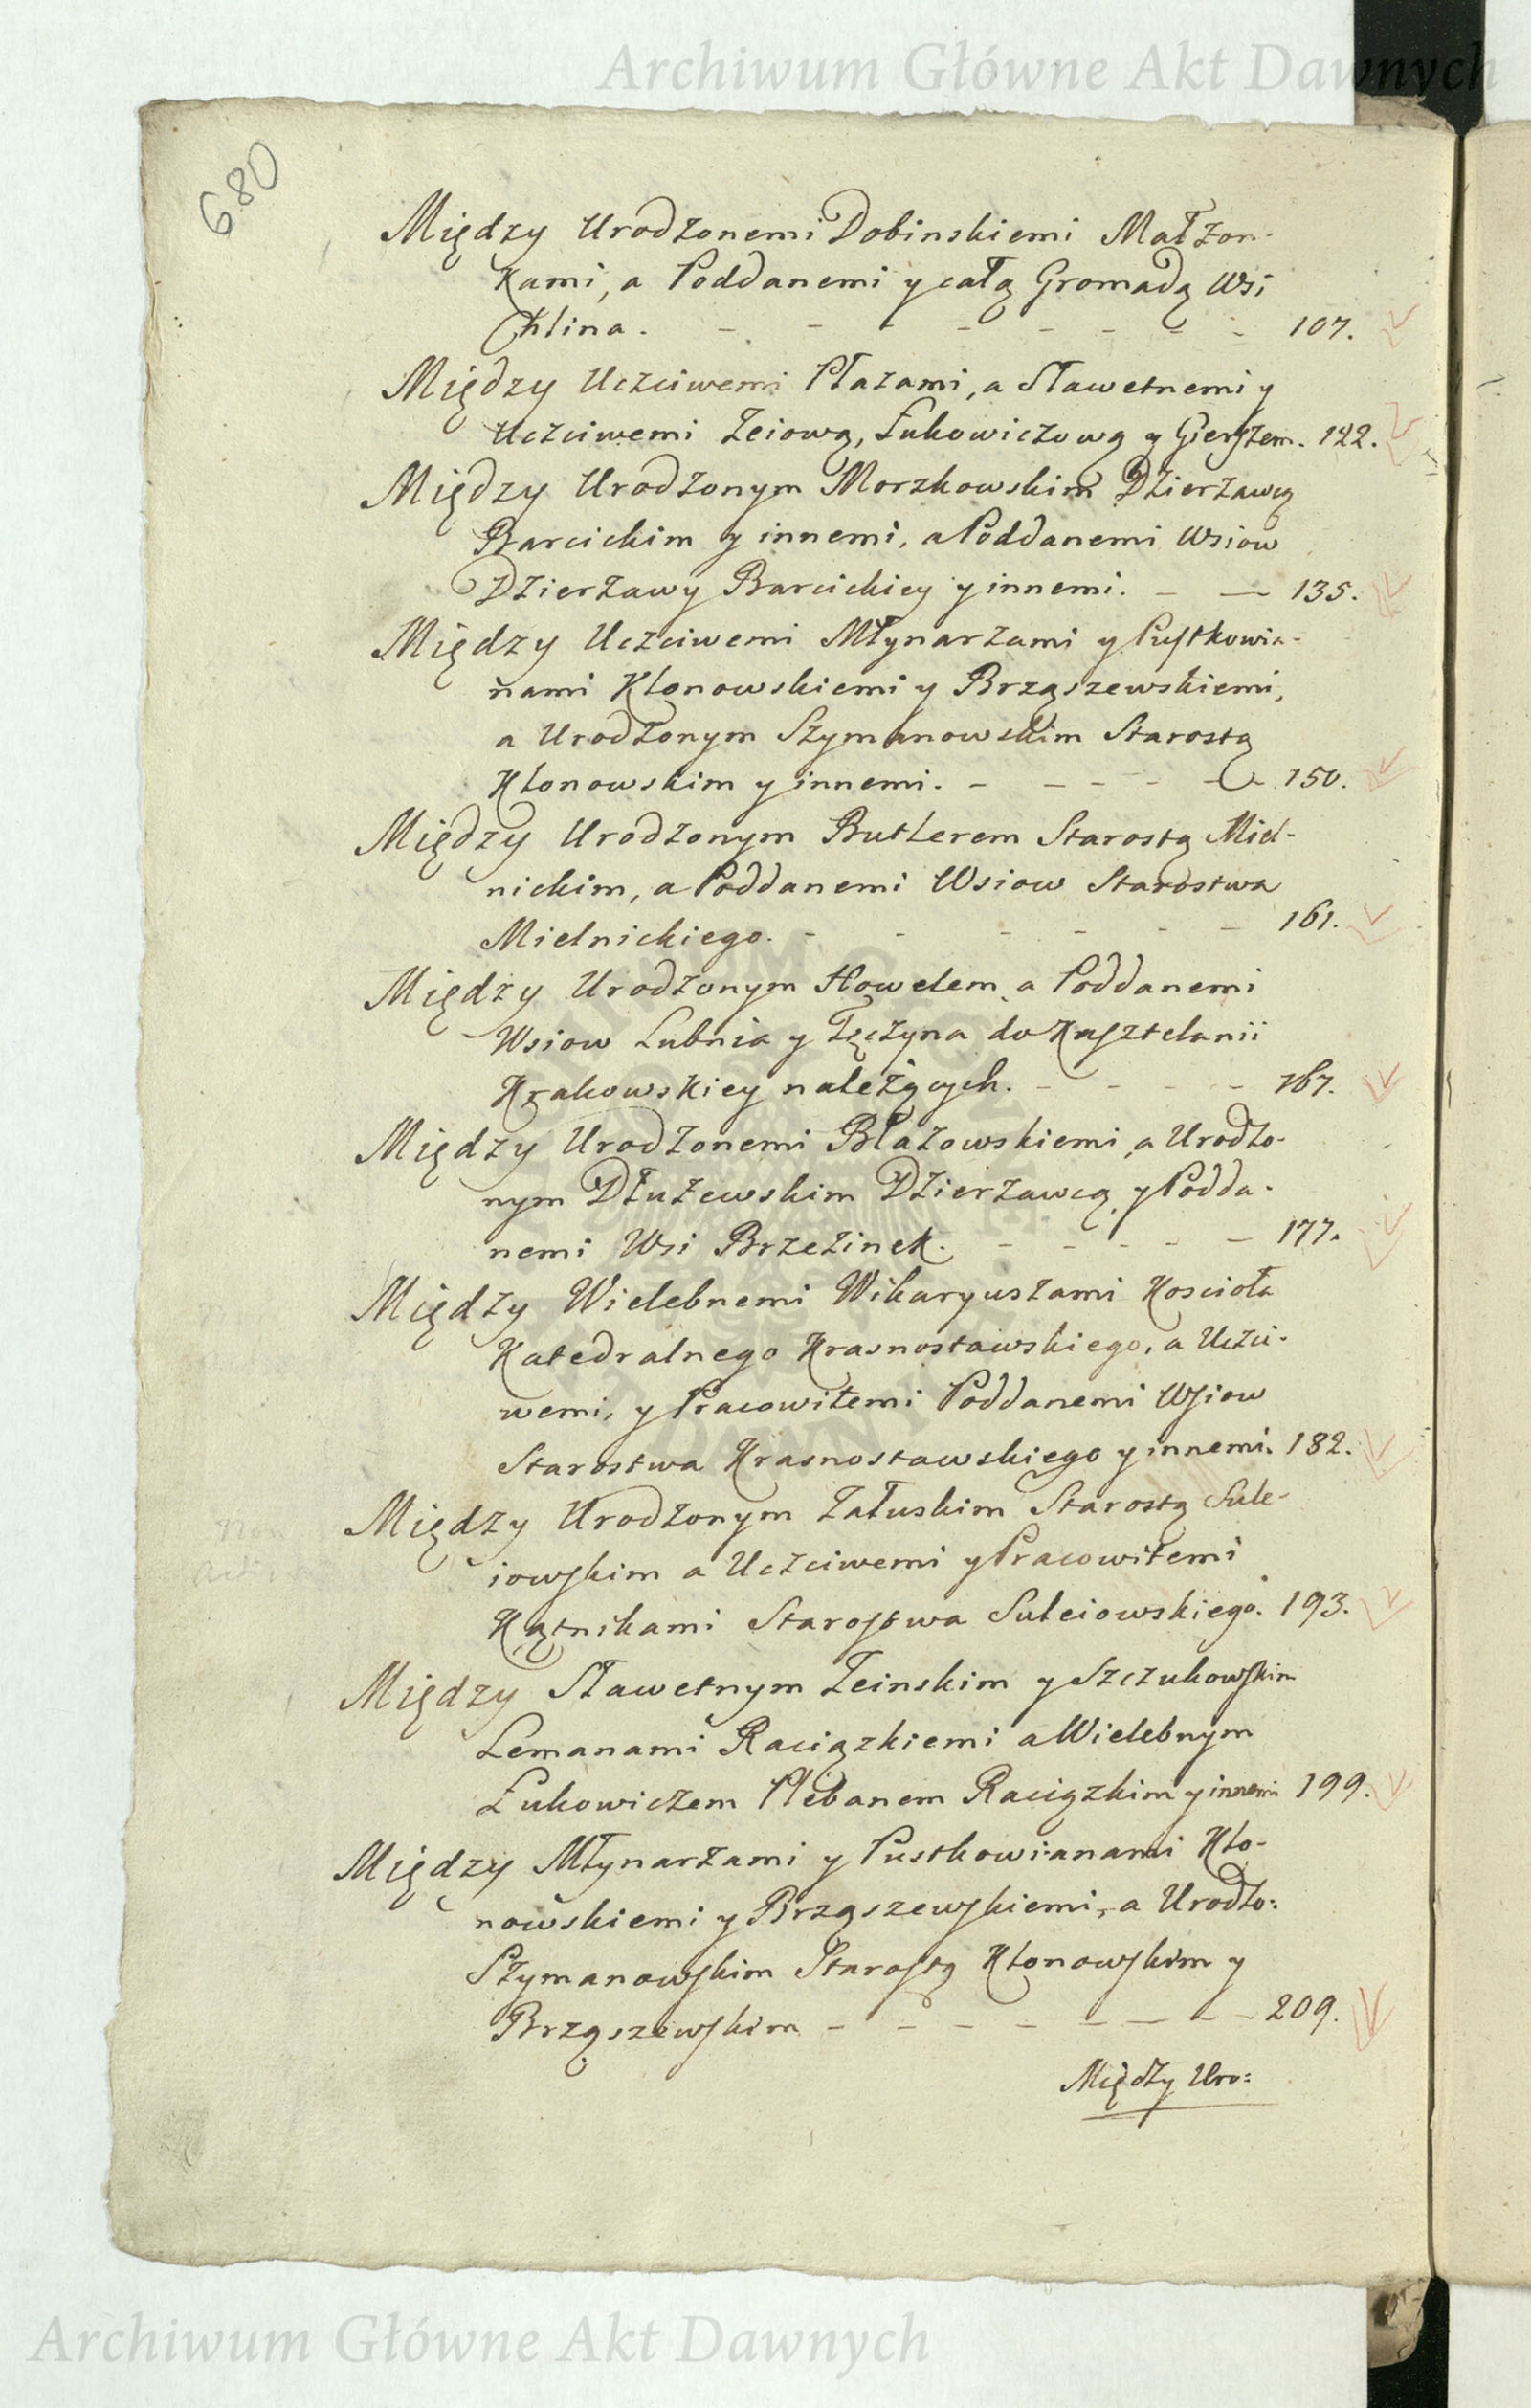 Archiwum Główne Akt Dawnych
680
Między Urodzonemi Dobinskiemi Małżon-
kami, a Poddanemi y całą Gromadą Wsi
Chlina. - - - - - - - 107.
Między Uczciwemi Płazami, a Sławetnemi y
Uczciwemi Zeiową, Łukowiczową y Gierszem. 122.
Między Urodzonym Morzkowskim Dzierżawcą
Barcickim y innemi, a Poddanemi Wsiow
Dzierżawy Barcickiey y innemi. - - 135.
Między Uczciwemi Młynarzami y Pustkowia-
nami Klonowskiemi y Brząszewskiemi,
a Urodzonym Szymanowskim Starostą
Klonowskim y innemi. - - - - - 150.
Między Urodzonym Butlerem Starostą Miel-
nickim, a Poddanemi Wsiow Starostwa
Mielnickiego. - - - - - - 161.
Między Urodzonym Howelem a Poddanemi
Wsiow Lubnia y Tęczyna do Kasztelanii
Krakowskiey należących. - - - - 167.
Między Urodzonemi Błażowskiemi, a Urodzo-
nym Dłużewskim Dzierżawcą y Podda-
nemi Wsi Brzezinek. - - - - - 177.
Między Wielebnemi Wikaryuszami Kościoła
Katedralnego Krasnostawskiego, a Uczci-
wemi, y Pracowitemi Poddanemi Wsiow
Starostwa Krasnostawskiego y innemi. 182.
Między Urodzonym Załuskim Starostą Sule-
iowskim a Uczciwemi y Pracowitemi
Kątnikami Starostwa Suleiowskiego. 193.
Między Sławetnym Zeinskim y Szczukowskim
Lemanami Raciązkiemi a Wielebnym
Łukowiczem Plebanem Raciązkim y innemi 199.
Między Młynarzami y Pustkowianami Klo-
nowskiemi y Brząszewskiemi, a Urodzo:
Szymanowskim Starostą Klonowskim y
Brząszewskim - - - - - - - 209.
Między Uro:
Archiwum Główne Akt Dawnych